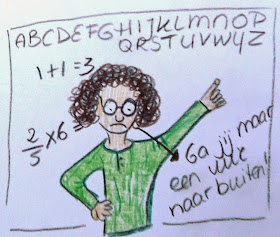 ABCDEFGHIJKLMNOP
QRSTUVWYZ
1+1=3
2/5 x6=
Ga jij maar
een uur
naar buiten!